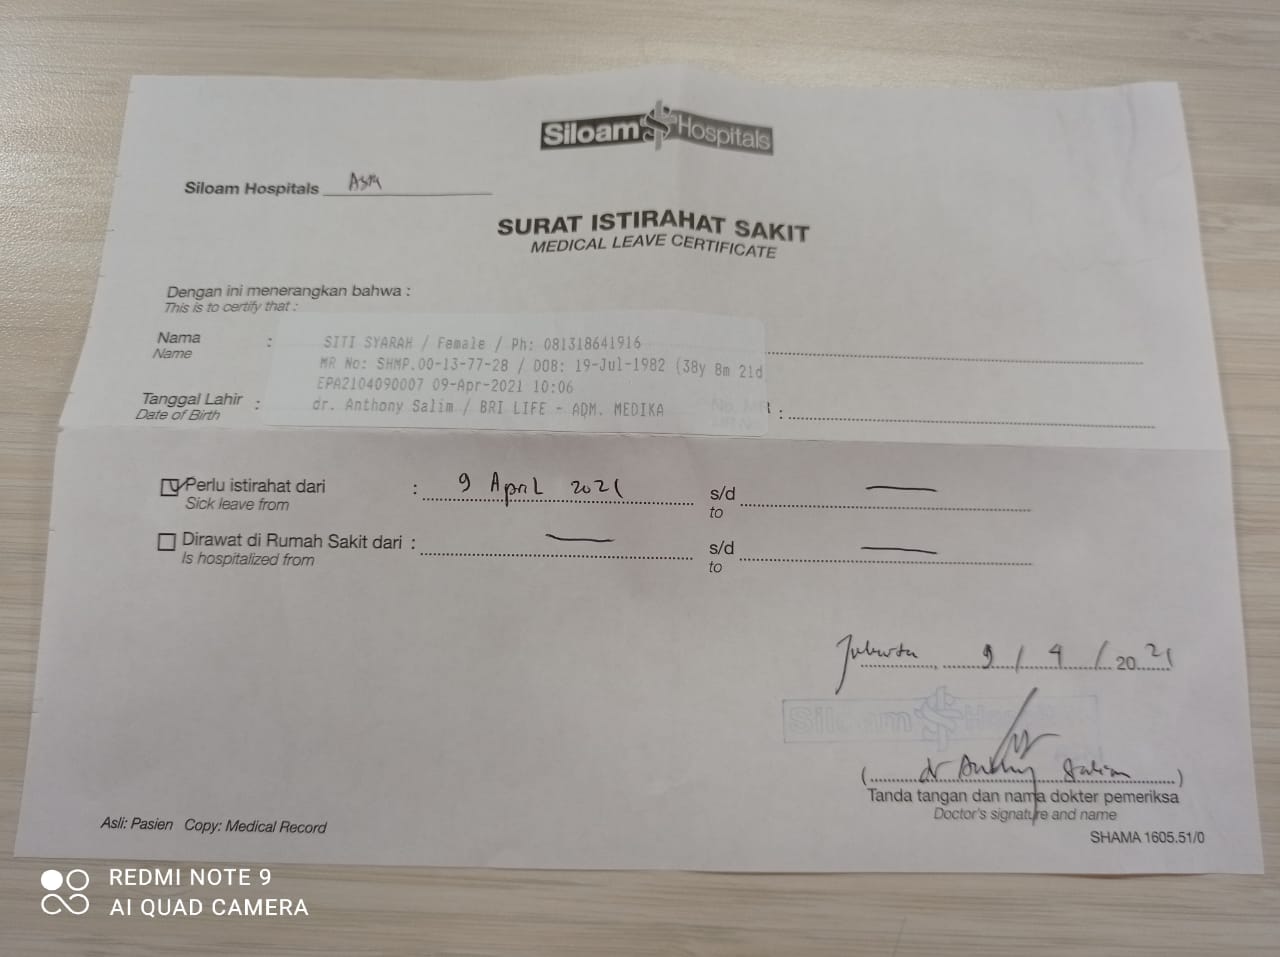 Siloam Hospitals
Siloam Hospitals Asri
SURAT ISTIRAHAT SAKIT
MEDICAL LEAVE CERTIFICATE
Dengan ini menerangkan bahwa :
This is to certify that :
Nama :
Name
SITI SYARAH / Female / Ph: 081318641916
MR No: SHMP.00-13-77-28 / DOB: 19-Jul-1982 (38y 8m 21d
EPA2104090007 09-Apr-2021 10:06
dr. Anthony Salim / BRI LIFE - ADM. MEDIKA
Tanggal Lahir :
Date of Birth
:
Perlu istirahat dari : 9 April 2021 s/d —
Sick leave from to
Dirawat di Rumah Sakit dari : — s/d —
Is hospitalized from to
Jakarta, 9 / 4 / 2021
Siloam Hospitals
(dr Anthony Salim)
Tanda tangan dan nama dokter pemeriksa
Doctor's signature and name
Asli: Pasien Copy: Medical Record
SHAMA 1605.51/0
REDMI NOTE 9
AI QUAD CAMERA